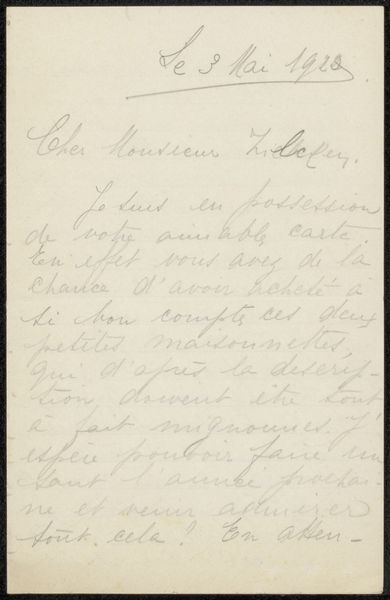 Le 3 Mai 1923.
Cher Monsieur Zilcken,
Je suis en possession
de votre aimable carte.
En effet vous avez de la
chance d'avoir acheté à
si bon compte ces deux
petites maisonnettes,
qui d'après la descrip-
tion doivent être tout
à fait mignonnes. J'
espère pouvoir faire un
saut l'année prochai-
ne et venir admirer
tout cela! En atten-